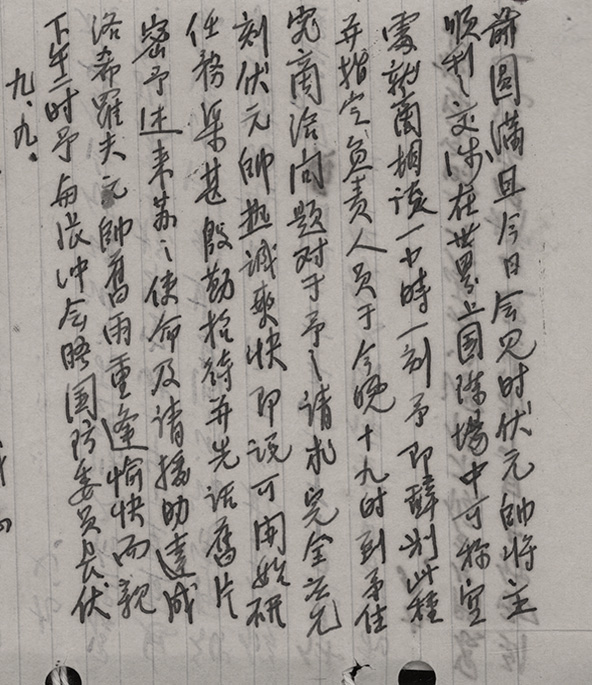 九.九.
下午二时予与张冲会晤國防委员長伏
洛希羅夫元帥舊雨重逢愉快而親
密予述来苏之使命及请援助達成
任務渠甚殷勤招待并先话舊片
刻伏元帥热诚爽快即说可開始研
究商洽问题对于予之请求完全应允
并指定负责人员于今晚十九时到予住
處就商相谈一小時一刻予即辞别此種
順利之交涉在世界上国际場中可称空
前圆满且今日会见时伏元帥将主